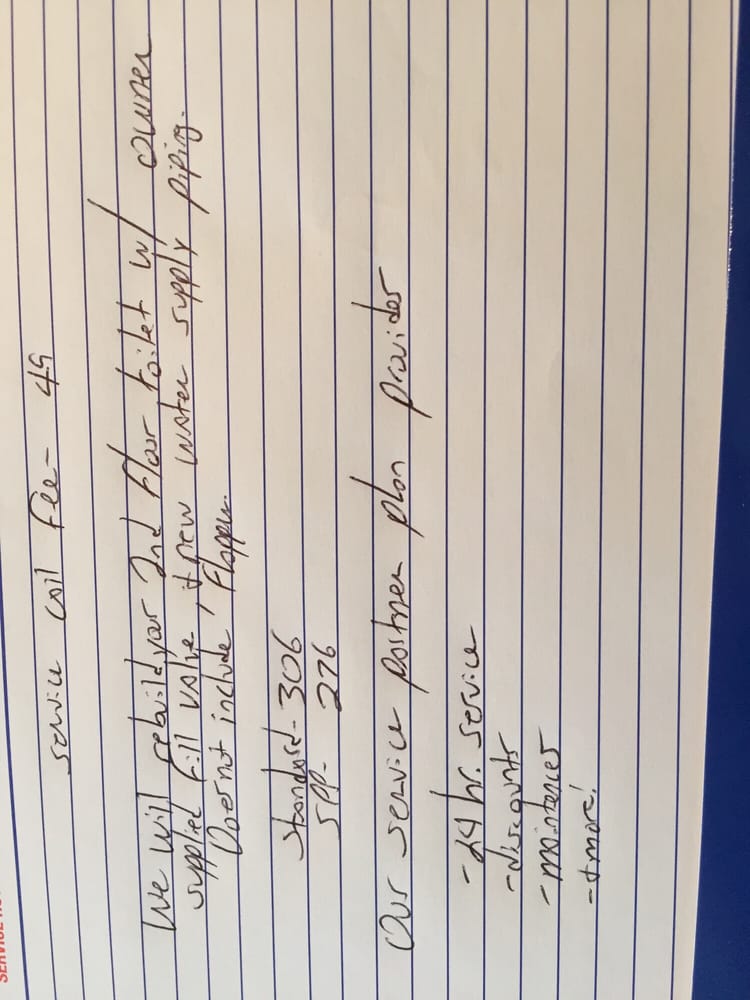 service call fee - 49
We will rebuild your 2nd floor toilet w/ owner
supplied fill valve, & new water supply piping.
Does not include flapper.
Standard - 306
SPP - 276
Our service partner plan provides
- 24 hr. service
- discounts
- maintences
- & more!